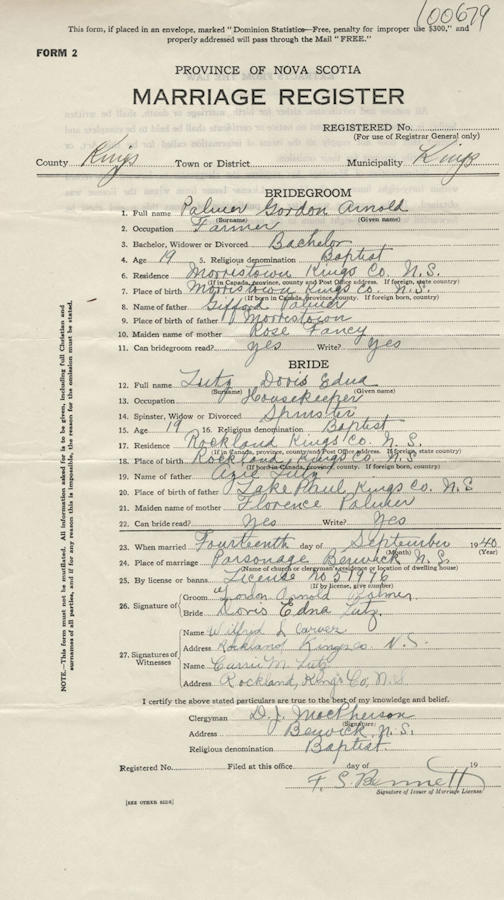 100679
This form, if placed in an envelope, marked "Dominion Statistics—Free, penalty for improper use $300," and
properly addressed will pass through the Mail "FREE."
FORM 2
PROVINCE OF NOVA SCOTIA
MARRIAGE REGISTER
REGISTERED No.
(For use of Registrar General only)
County Kings Town or District Municipality Kings
BRIDEGROOM
1. Full name Palmer Gordon Arnold
(Surname) (Given name)
2. Occupation Farmer
3. Bachelor, Widower or Divorced Bachelor
4. Age 19 5. Religious denomination Baptist
6. Residence Morristown Kings Co. N.S.
(If in Canada, province, county and Post Office address. If foreign, state country)
7. Place of birth Morristown Kings Co. N.S.
(If born in Canada, province, county. If foreign born, country)
8. Name of father Gifford Palmer
9. Place of birth of father Morristown
10. Maiden name of mother Rose Fancy
11. Can bridegroom read? Yes Write? Yes
BRIDE
12. Full name Lutz Doris Edna
(Surname) (Given name)
13. Occupation Housekeeper
14. Spinster, Widow or Divorced Spinster
15. Age 19 16. Religious denomination Baptist
17. Residence Rockland Kings Co. N.S.
(If in Canada, province, county and Post Office address. If foreign, state country)
18. Place of birth Rockland Kings Co. N.S.
(If born in Canada, province, county. If foreign born, country)
19. Name of father Lutz
20. Place of birth of father Lake Paul Kings Co. N.S
21. Maiden name of mother Florence Palmer
22. Can bride read? Yes Write? Yes
23. When married Fourteenth day of September 1940
(Month) (Year)
24. Place of marriage Parsonage Berwick N.S.
(Name of church or clergyman's residence or location of dwelling house)
25. By license or banns License no 51976
(If by license, give number)
26. Signature of Groom Gordon Arnold Palmer.
Bride Doris Edna Lutz.
27. Signatures of Witnesses
Name Wilfred L Carver
Address Rockland Kings co. N.S.
Name Carrie M. Lutz
Address Rockland, Kings Co, N.S.
I certify the above stated particulars are true to the best of my knowledge and belief.
Clergyman D. J. MacPherson
(Signature)
Address Berwick, N.S.
Religious denomination Baptist.
Registered No. Filed at this office day of 19
F. S. Bennett
Signature of Issuer of Marriage License
[SEE OTHER SIDE]
NOTE.—This form must not be mutilated. All information asked for is to be given, including full Christian and
surnames of all parties, and if for any reason this is impossible, the reason for the omission must be stated.